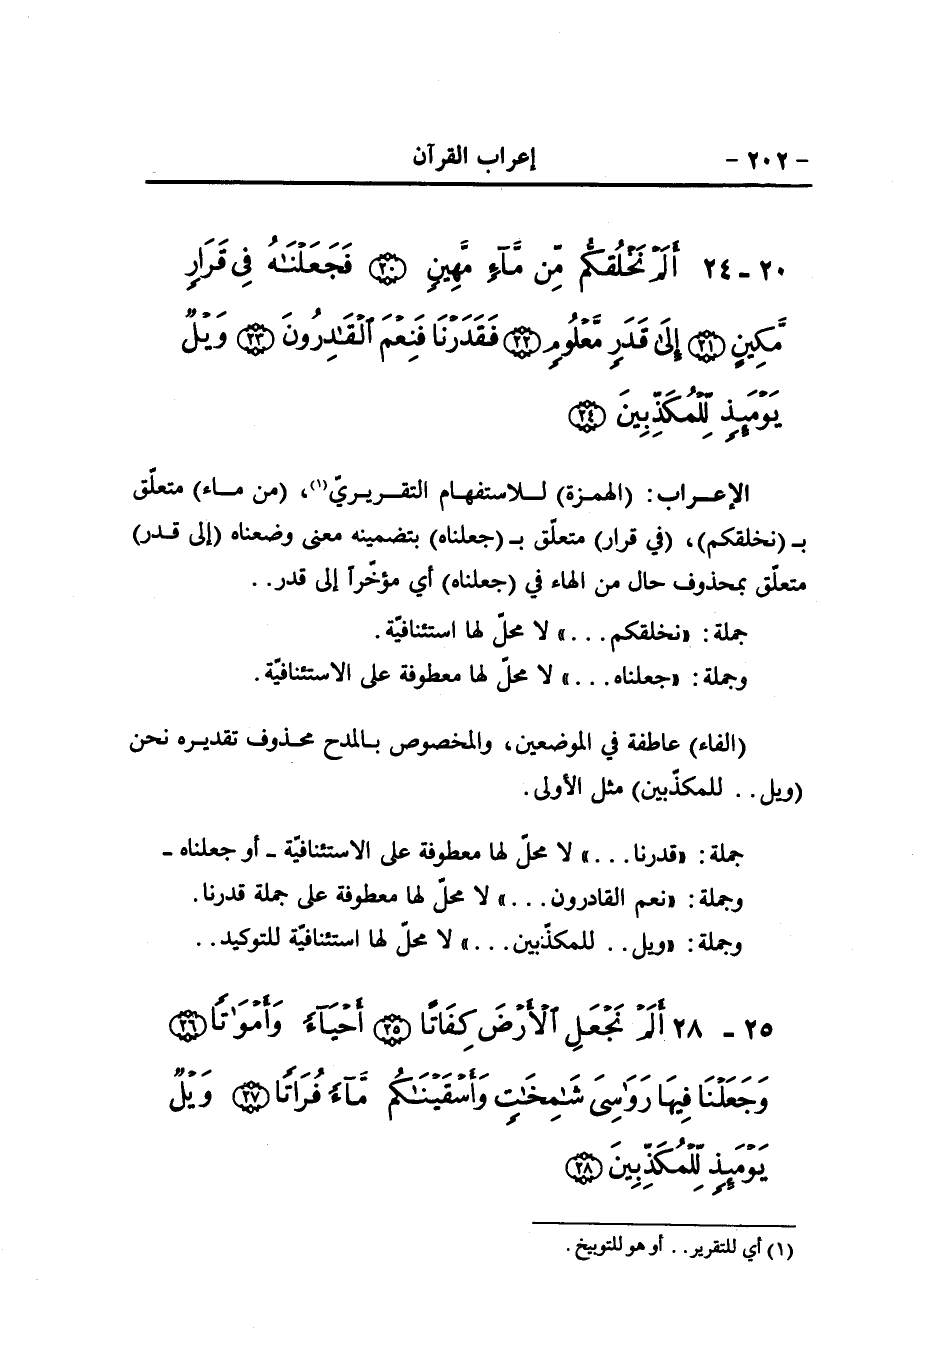 - ٢٠٢ - إعراب القرآن
٢٠ - ٢٤ أَلَمْ نَخْلُقكُّم مِّن مَّآءٍ مَّهِينٍ ﴿٢٠﴾ فَجَعَلْنَٰهُ فِى قَرَارٍ
مَّكِينٍ ﴿٢١﴾ إِلَىٰ قَدَرٍ مَّعْلُومٍ ﴿٢٢﴾ فَقَدَرْنَا فَنِعْمَ ٱلْقَٰدِرُونَ ﴿٢٣﴾ وَيْلٌ
يَوْمَئِذٍ لِّلْمُكَذِّبِينَ ﴿٢٤﴾
الإعراب: (الهمزة) للاستفهام التقريريّ(١)، (من ماء) متعلّق
بـ (نخلقكم)، (في قرار) متعلّق بـ (جعلناه) بتضمينه معنى وضعناه (إلى قدر)
متعلّق بمحذوف حال من الهاء في (جعلناه) أي مؤخّراً إلى قدر..
جملة: «نخلقكم...» لا محلّ لها استئنافيّة.
وجملة: «جعلناه...» لا محلّ لها معطوفة على الاستئنافيّة.
(الفاء) عاطفة في الموضعين، والمخصوص بالمدح محذوف تقديره نحن
(ويل.. للمكذّبين) مثل الأولى.
جملة: «قدرنا...» لا محلّ لها معطوفة على الاستئنافيّة - أو جعلناه -
وجملة: «نعم القادرون...» لا محلّ لها معطوفة على جملة قدرنا.
وجملة: «ويل.. للمكذّبين...» لا محلّ لها استئنافيّة للتوكيد..
٢٥ - ٢٨ أَلَمْ نَجْعَلِ ٱلْأَرْضَ كِفَاتًا ﴿٢٥﴾ أَحْيَآءً وَأَمْوَٰتًا ﴿٢٦﴾
وَجَعَلْنَا فِيهَا رَوَٰسِىَ شَٰمِخَٰتٍ وَأَسْقَيْنَٰكُم مَّآءً فُرَاتًا ﴿٢٧﴾ وَيْلٌ
يَوْمَئِذٍ لِّلْمُكَذِّبِينَ ﴿٢٨﴾
(١) أي للتقرير.. أو هو للتوبيخ.